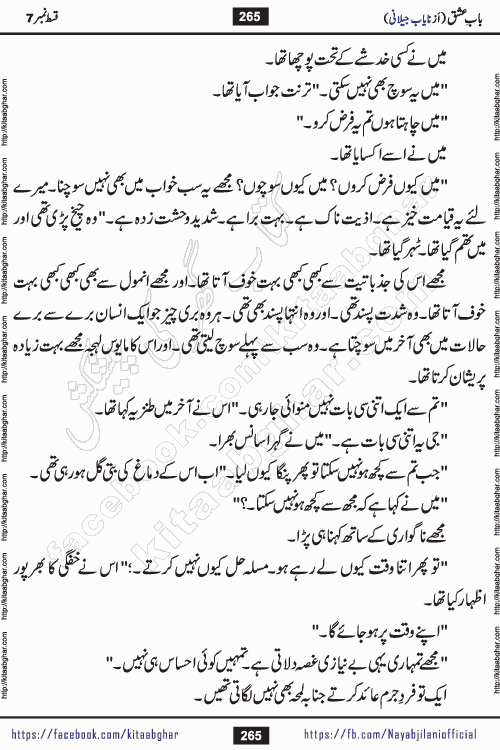 باب عشق (از نایاب جیلانی)
265
قسط نمبر 7
میں نے کسی خدشے کے تحت پوچھا تھا۔
"میں یہ سوچ بھی نہیں سکتی۔" ترنت جواب آیا تھا۔
"میں چاہتا ہوں تم یہ فرض کرو۔"
میں نے اسے اکسایا تھا۔
"میں کیوں فرض کروں؟ میں کیوں سوچوں؟ مجھے یہ سب خواب میں بھی نہیں سوچنا۔ میرے
لئے یہ قیامت خیز ہے۔ اذیت ناک ہے۔ بہت برا ہے۔ شدید وحشت زدہ ہے۔" وہ چیخ پڑی تھی اور
میں تھم گیا تھا۔ ٹھہر گیا تھا۔
مجھے اس کی جذباتیت سے کبھی کبھی بہت خوف آتا تھا۔ اور مجھے انمول سے بھی کبھی کبھی بہت
خوف آتا تھا۔ وہ شدت پسند تھی۔ اور وہ انتہا پسند بھی تھی۔ ہر وہ بری چیز جو ایک انسان برے سے برے
حالات میں بھی آخر میں سوچتا ہے۔ وہ سب سے پہلے سوچ لیتی تھی۔ اور اس کا مایوس لہجہ مجھے بہت زیادہ
پریشان کرتا تھا۔
"تم سے ایک اتنی سی بات نہیں منوائی جا رہی۔" اس نے آخر میں طنزیہ کہا تھا۔
"جی یہ اتنی سی بات ہے۔" میں نے گہرا سانس بھرا۔
"جب تم سے کچھ ہو نہیں سکتا تو پھر پنگا کیوں لیا۔" اب اس کے دماغ کی بتی گل ہو رہی تھی۔
"میں نے کہا ہے کہ مجھ سے کچھ ہو نہیں سکتا۔؟"
مجھے ناگواری کے ساتھ کہنا ہی پڑا۔
"تو پھر اتنا وقت کیوں لے رہے ہو۔ مسلہ حل کیوں نہیں کرتے۔؛" اس نے خفگی کا بھرپور
اظہار کیا تھا۔
"اپنے وقت پر ہو جائے گا۔"
"مجھے تمہاری یہی بے نیازی غصہ دلاتی ہے۔ تمہیں کوئی احساس ہی نہیں۔"
ایک تو فرد جرم عائد کرتے جنابہ لمحہ بھی نہیں لگاتی تھیں۔
https://facebook.com/kitaabghar
265
https://fb.com/Nayabjilaniofficial
http://kitaabghar.com
کتاب گھر کی پیشکش
facebook.com/kitaabghar
kitaabghar.com